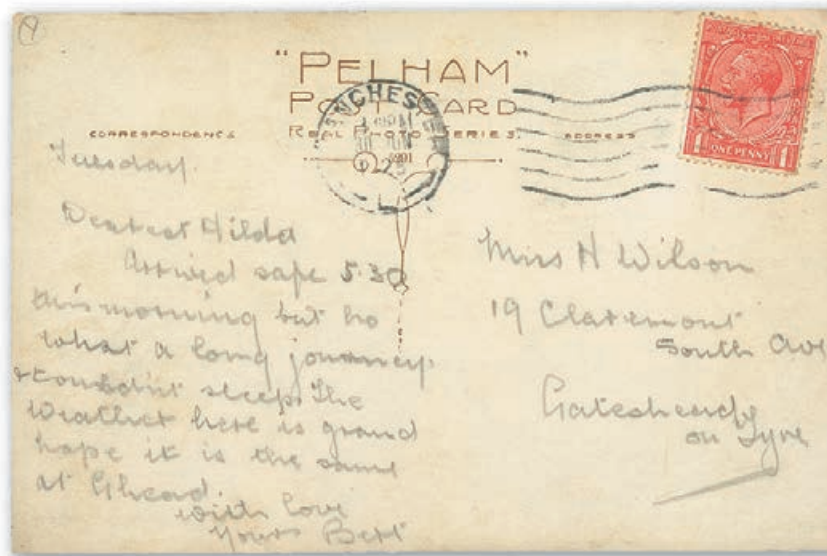 "PELHAM"
POST CARD
CORRESPONDENCE
REAL PHOTO SERIES.
ADDRESS
ONE PENNY
Tuesday.
Dearest Hilda
Arrived safe 5.30
this morning but ho
what a long journey
& couldnt sleep. The
Weather here is grand
hope it is the same
at Ghead.
with love
Yours Bert
Miss H Wilson
19 Claremont
South Ave
Gateshead
on Tyne